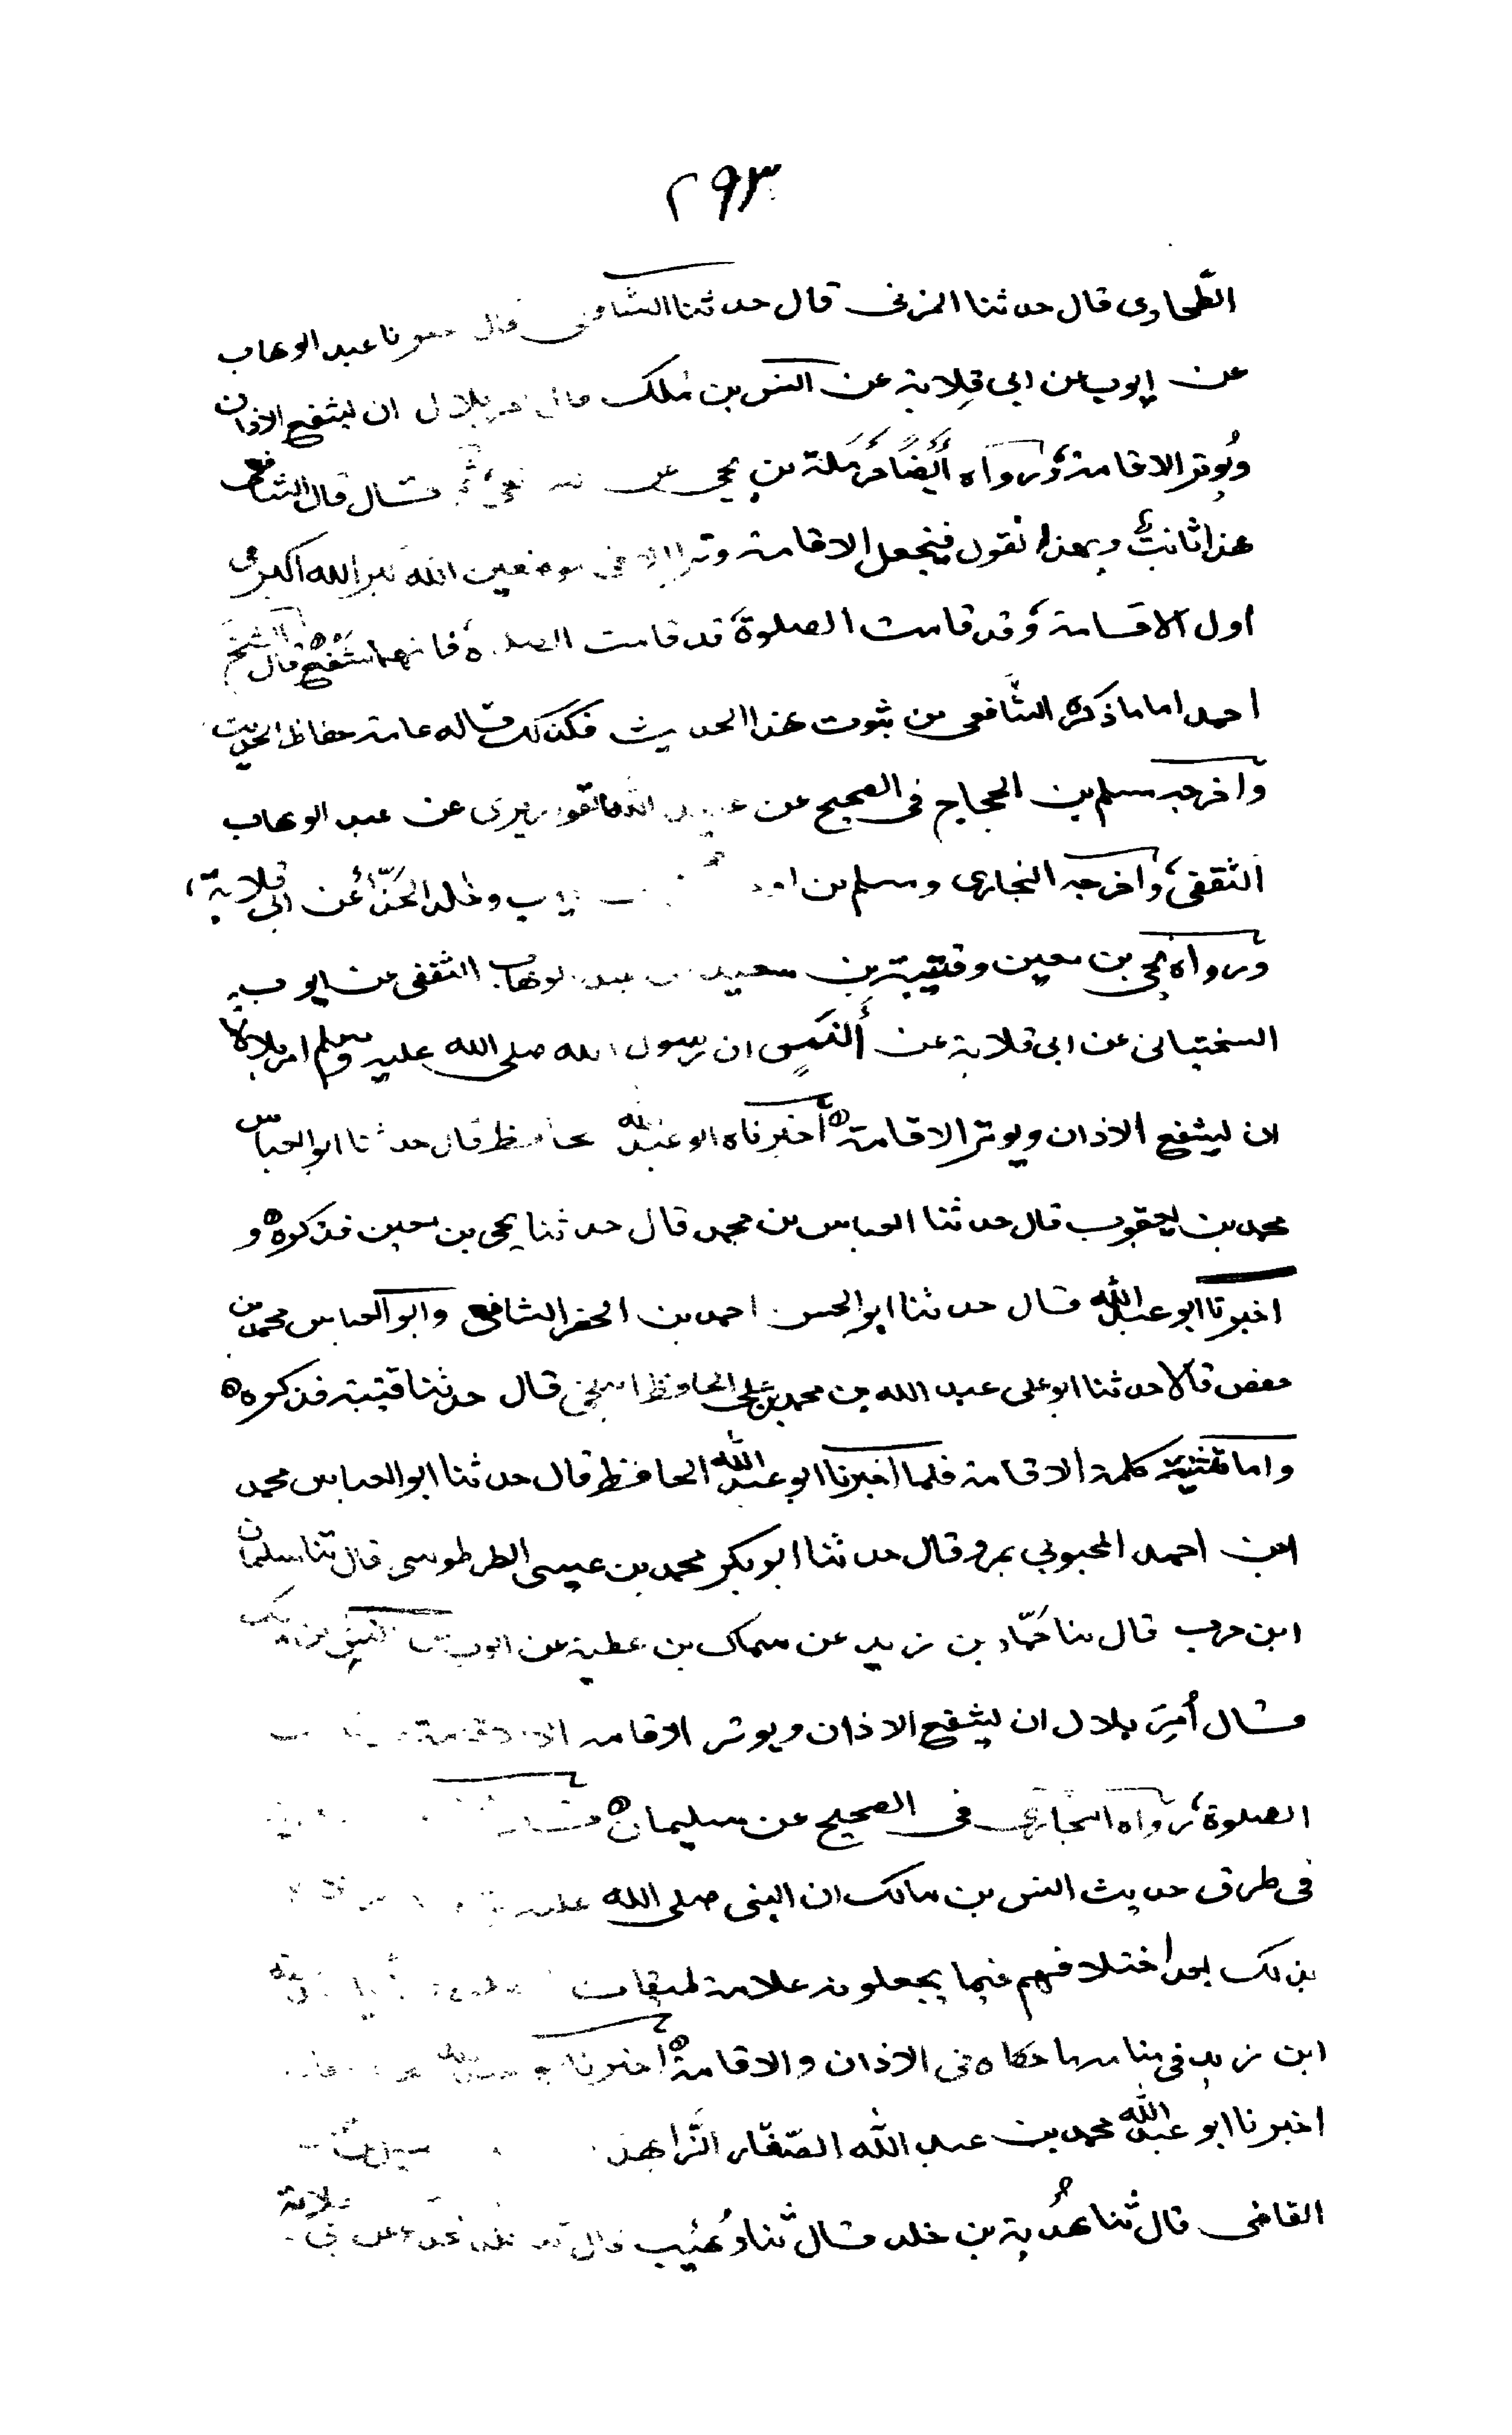 ٢٩٣
الطحاوى قال حدثنا المزنى قال حدثنا الشافعى قال عبد الوهاب
عن ايوب عن ابى قلابة عن انس بن ملك بلال ان يشفع الاذان
ويُوتر الاقامة، ورواه أيضًا حَرمَلة بن يحيى قال قال الشافعى
هذا ثابتٌ وبهذا نقول فيجعل الاقامة وترا الا فى موضعين الله اكبر الله اكبر فى
اول الاقامة، وقد قامت الصلوة، قد قامت الصلوة، فانهما شَفْع قال الشيخ
احمد اما ما ذكره الشافعى من ثبوت هذا الحديث فكذلك قاله عامة حفاظ الحديث
واخرجه مسلم بن الحجاج فى الصحيح عن عبيد الله القواريرى عن عبد الوهاب
الثقفى، واخرجه البخارى ومسلم من ايوب وخلد الحَذّاء عن ابى قلابة،
ورواه يحيى بن معين وقتيبة بن سعيد عن عبد الوهاب الثقفى عن ايوب
السختيانى عن ابى قلابة عن أنَسٍ ان رسول الله صلى الله عليه وسلم امر بلالا
ان يشفع الاذان ويوتر الاقامة ه أخبرناه ابو عبد الله الحافظ قال حدثنا ابو العباس
محمد بن يعقوب قال حدثنا العباس بن محمد قال حدثنا يحيى بن معين فذكره ه و
اخبرنا ابو عبد الله قال حدثنا ابو الحسن احمد بن الخضر الشافعى وابو العباس محمد بن
قالا حدثنا ابو على عبد الله بن محمد بن على الحافظ البلخى قال حدثنا قتيبة فذكره ه
واما تثنية كلمة الاقامة فلما اخبرنا ابو عبد الله الحافظ قال حدثنا ابو العباس محمد
ابن احمد المحبوبى بمرو قال حدثنا ابو بكر محمد بن عيسى الطرطوسى قال ثنا سليمان
ابن حرب قال ثنا حَمّاد بن زيد عن سماك بن عطية عن ايوب عن انس بن ملك
قال أمِرَ بلال ان يشفع الاذان ويوتر الاقامه الا
الصلوة، رواه البخارى فى الصحيح عن سليمان ه
فى طرق حديث انس بن مالك ان النبى صلى الله عليه
بذلك بعد اختلافهم فيما يجعلونه علامة لميقات
ابن زيد فى منامه ما حكاه فى الاذان والاقامة ه أخبرنا
اخبرنا ابو عبد الله محمد بن عبد الله الصّفّار الزّاهد
القاضى قال ثنا هُدبة بن خلد قال ثنا وُهَيْب قال